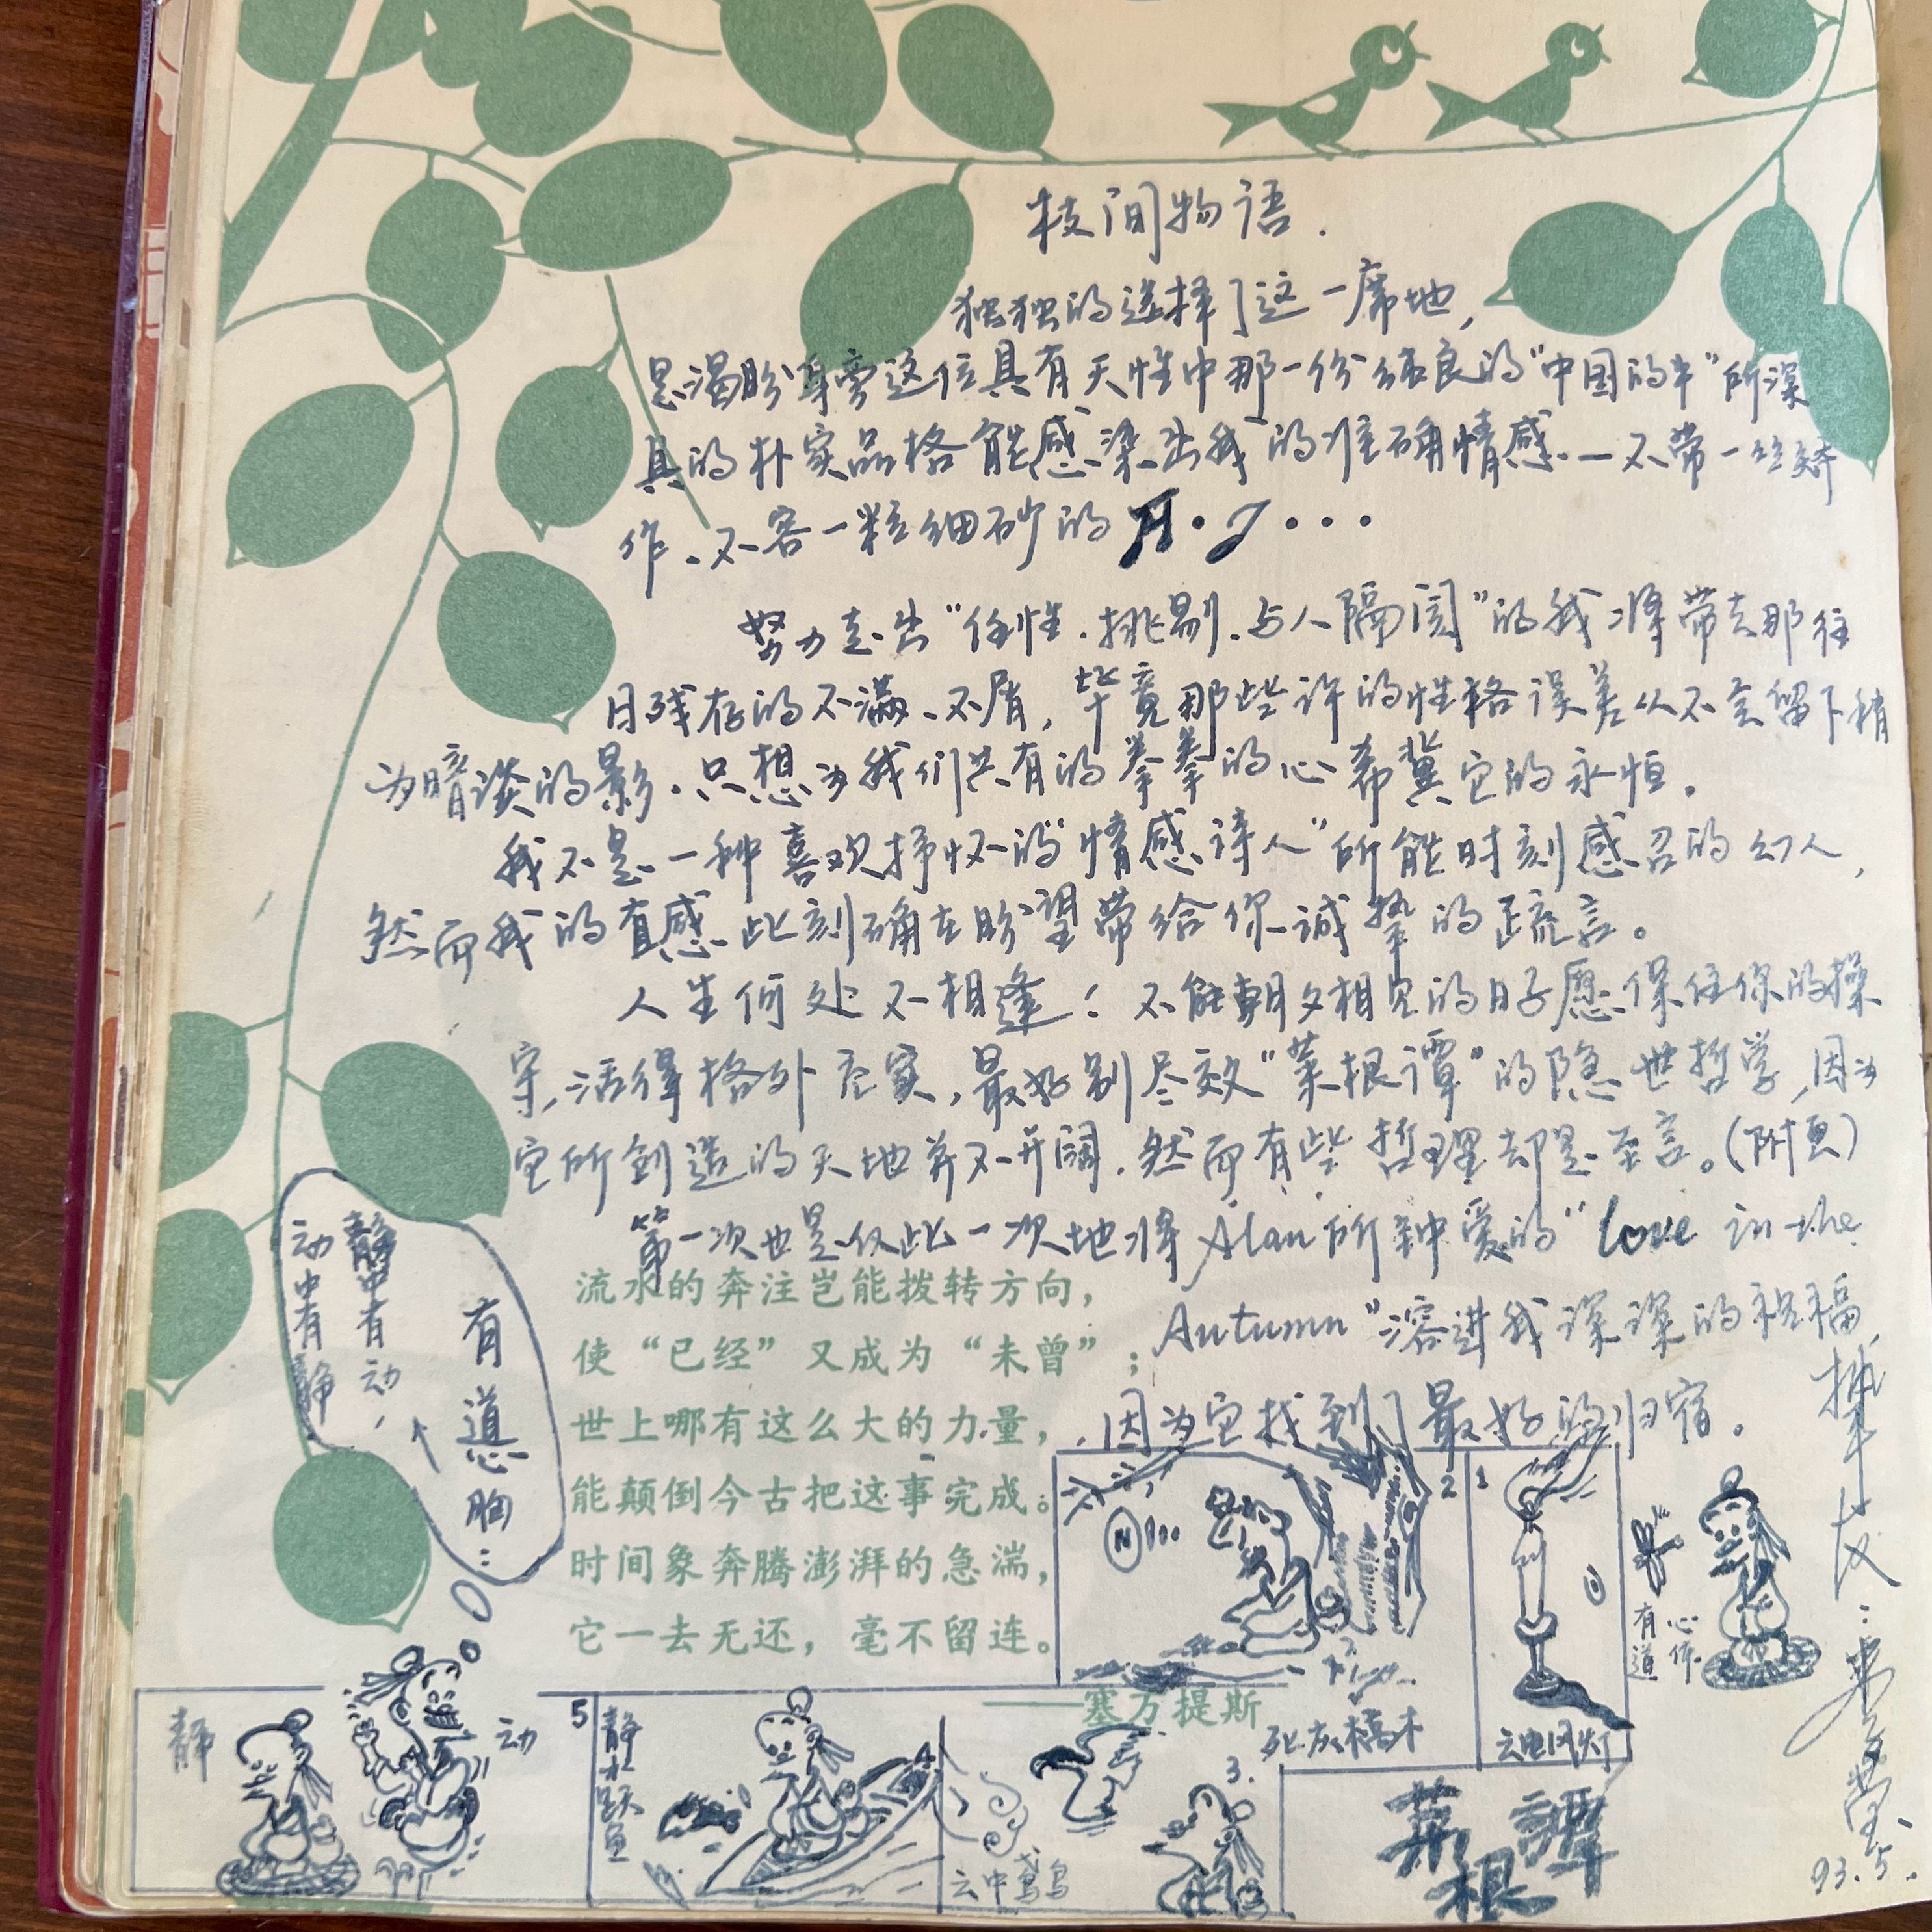 枝间物语.
独独的选择了这一席地,
是渴盼身旁这位具有天性中那一份纯良的"中国的牛"所深
具的朴实品格能感染出我的准确情感.一不带一丝矫
作、不容一粒细砂的 A·J···
努力走出"任性.挑剔.与人隔阂"的我将带去那往
日残存的不满、不屑,毕竟那些许的性格误差从不会留下稍
为暗淡的影.只想为我们共有的拳拳的心希冀它的永恒。
我不是一种喜欢抒怀的"情感诗人"所能时刻感召的幻人,
然而我的直感此刻确在盼望带给你诚挚的疏言。
人生何处不相逢!不能朝夕相见的日子愿保住你的操
守,活得格外充实,最好别尽效"菜根谭"的隐世哲学,因为
它所创造的天地并不开阔.然而有些哲理却是至言。(附页)
第一次也是仅此一次地将Alan所钟爱的"love in the
Autumn"溶进我深深的祝福,
因为它找到了最好的归宿。
挚友:
93.5.
流水的奔注岂能拨转方向,
使“已经”又成为“未曾”;
世上哪有这么大的力量,
能颠倒今古把这事完成。
时间象奔腾澎湃的急湍,
它一去无还,毫不留连。
——塞万提斯
有道心胸:
静中有动,
动中有静
1
云电风灯
有道心体
2
死灰槁木
3.
云中
5
静水跃鱼
静
动
菜根譚